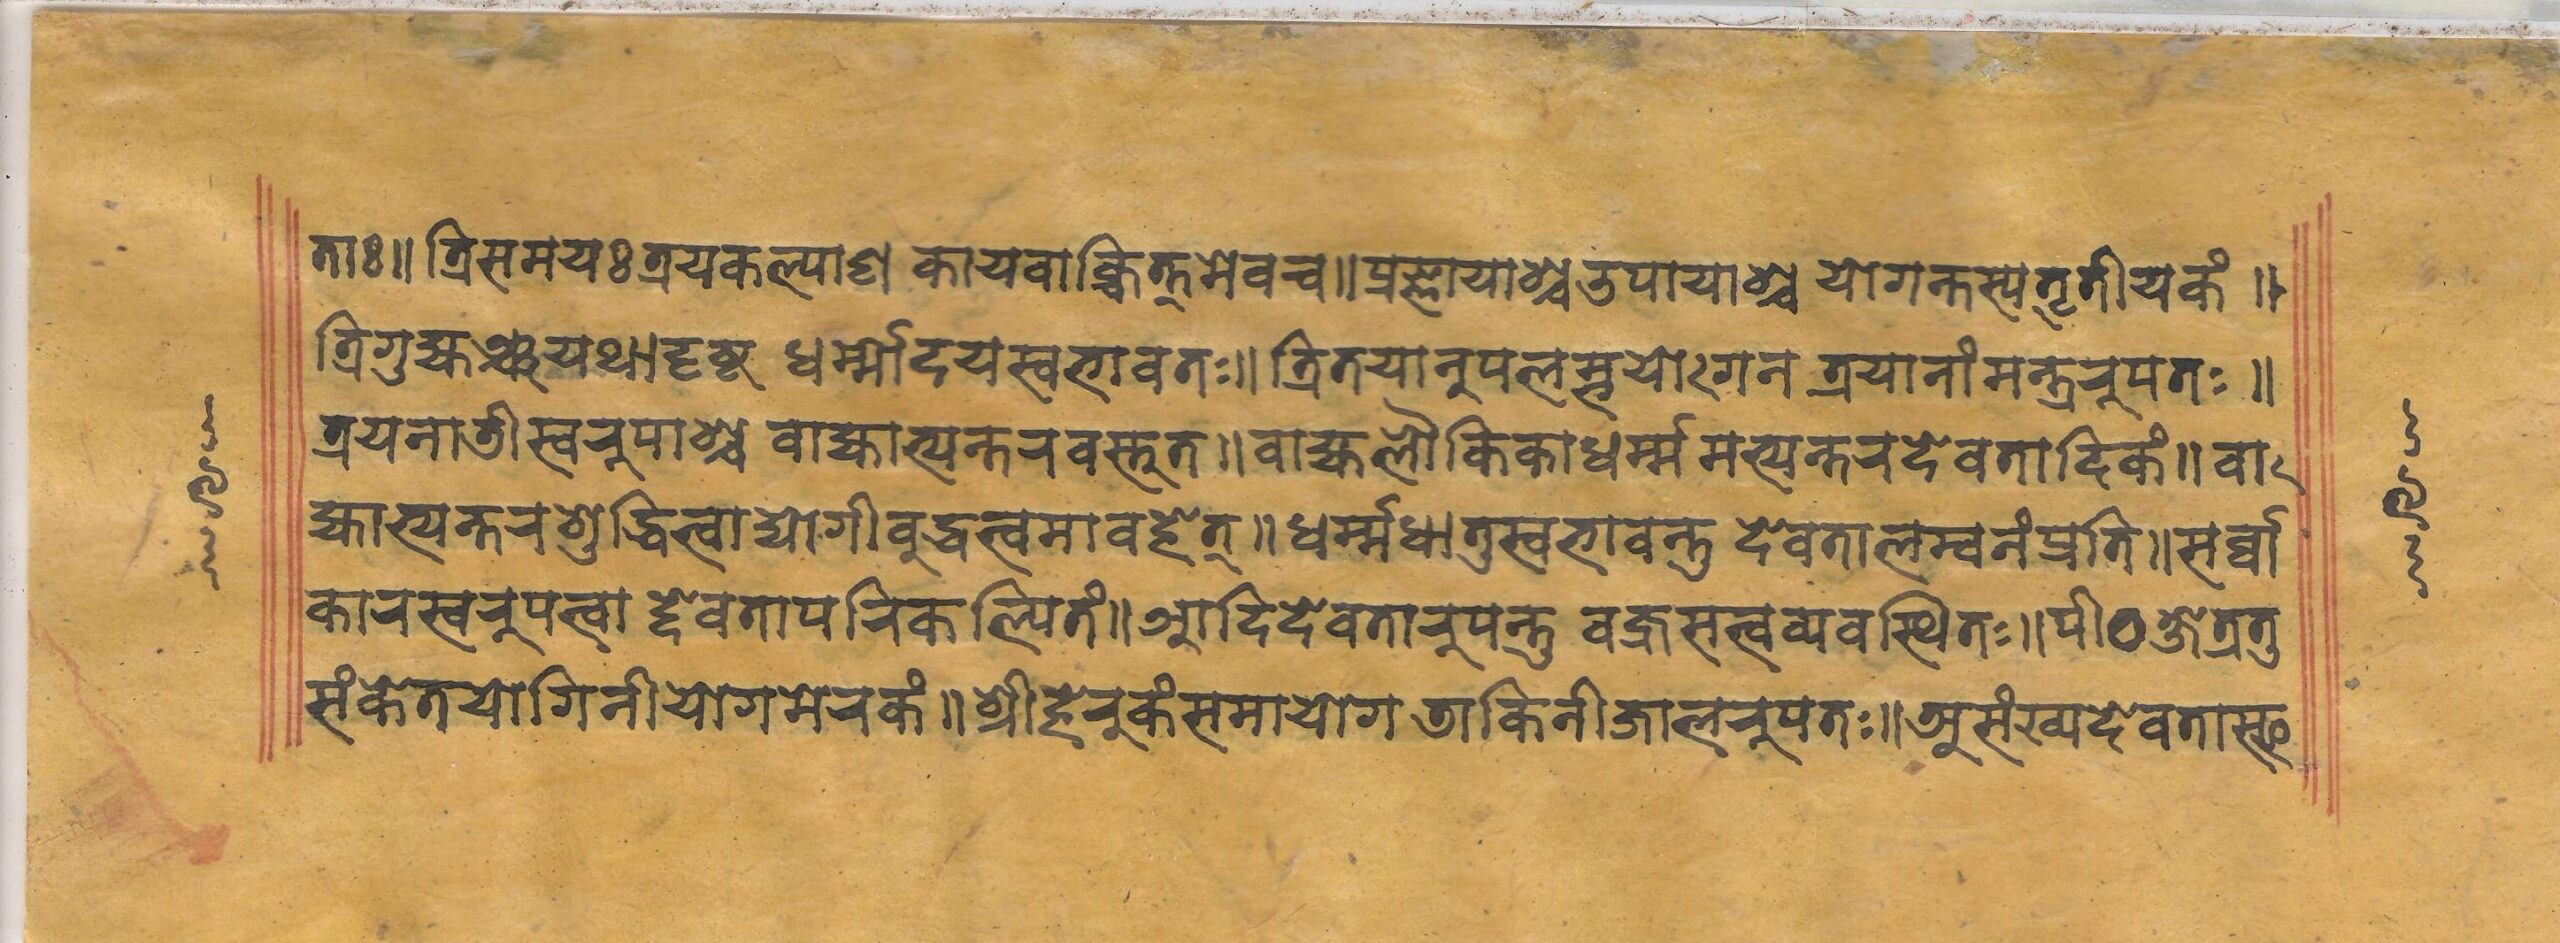 ताः॥ त्रिसमयः त्रयकल्पाश कायवाक्चित्तमेवच॥ प्रज्ञायाश्च उपायाश्च योगन्तस्य तृतीयकं ॥
त्रिगुह्यञ्च यथा दृष्ट धर्म्मोदयस्वभावतः॥ त्रितयानुपलम्भयोगेन त्रयानां मन्त्ररूपतः ॥
त्रयनाडीस्वरूपाश्च वाह्याभ्यन्तरवस्तुत॥ वाह्यलौकिकाधर्म्ममभ्यन्तरदेवतादिकं॥ वा
ह्याभ्यन्तरशुद्धित्वाद्योगी वुद्धत्वमावहेत्॥ धर्म्मधातुस्वभावन्तु देवतालम्वनं प्रति॥ सर्व्वा
कारस्वरूपत्वा द्देवतापरिकल्पितं॥ आदिदेवतारूपन्तु वज्रसत्त्वव्यवस्थितः॥ पीठक्षेत्रतु
संकेतयोगिनीयोगमेरकं॥ श्रीहेरुकंसमायोग डाकिनीजालरूपतः॥ असंख्यदेवतास्फ